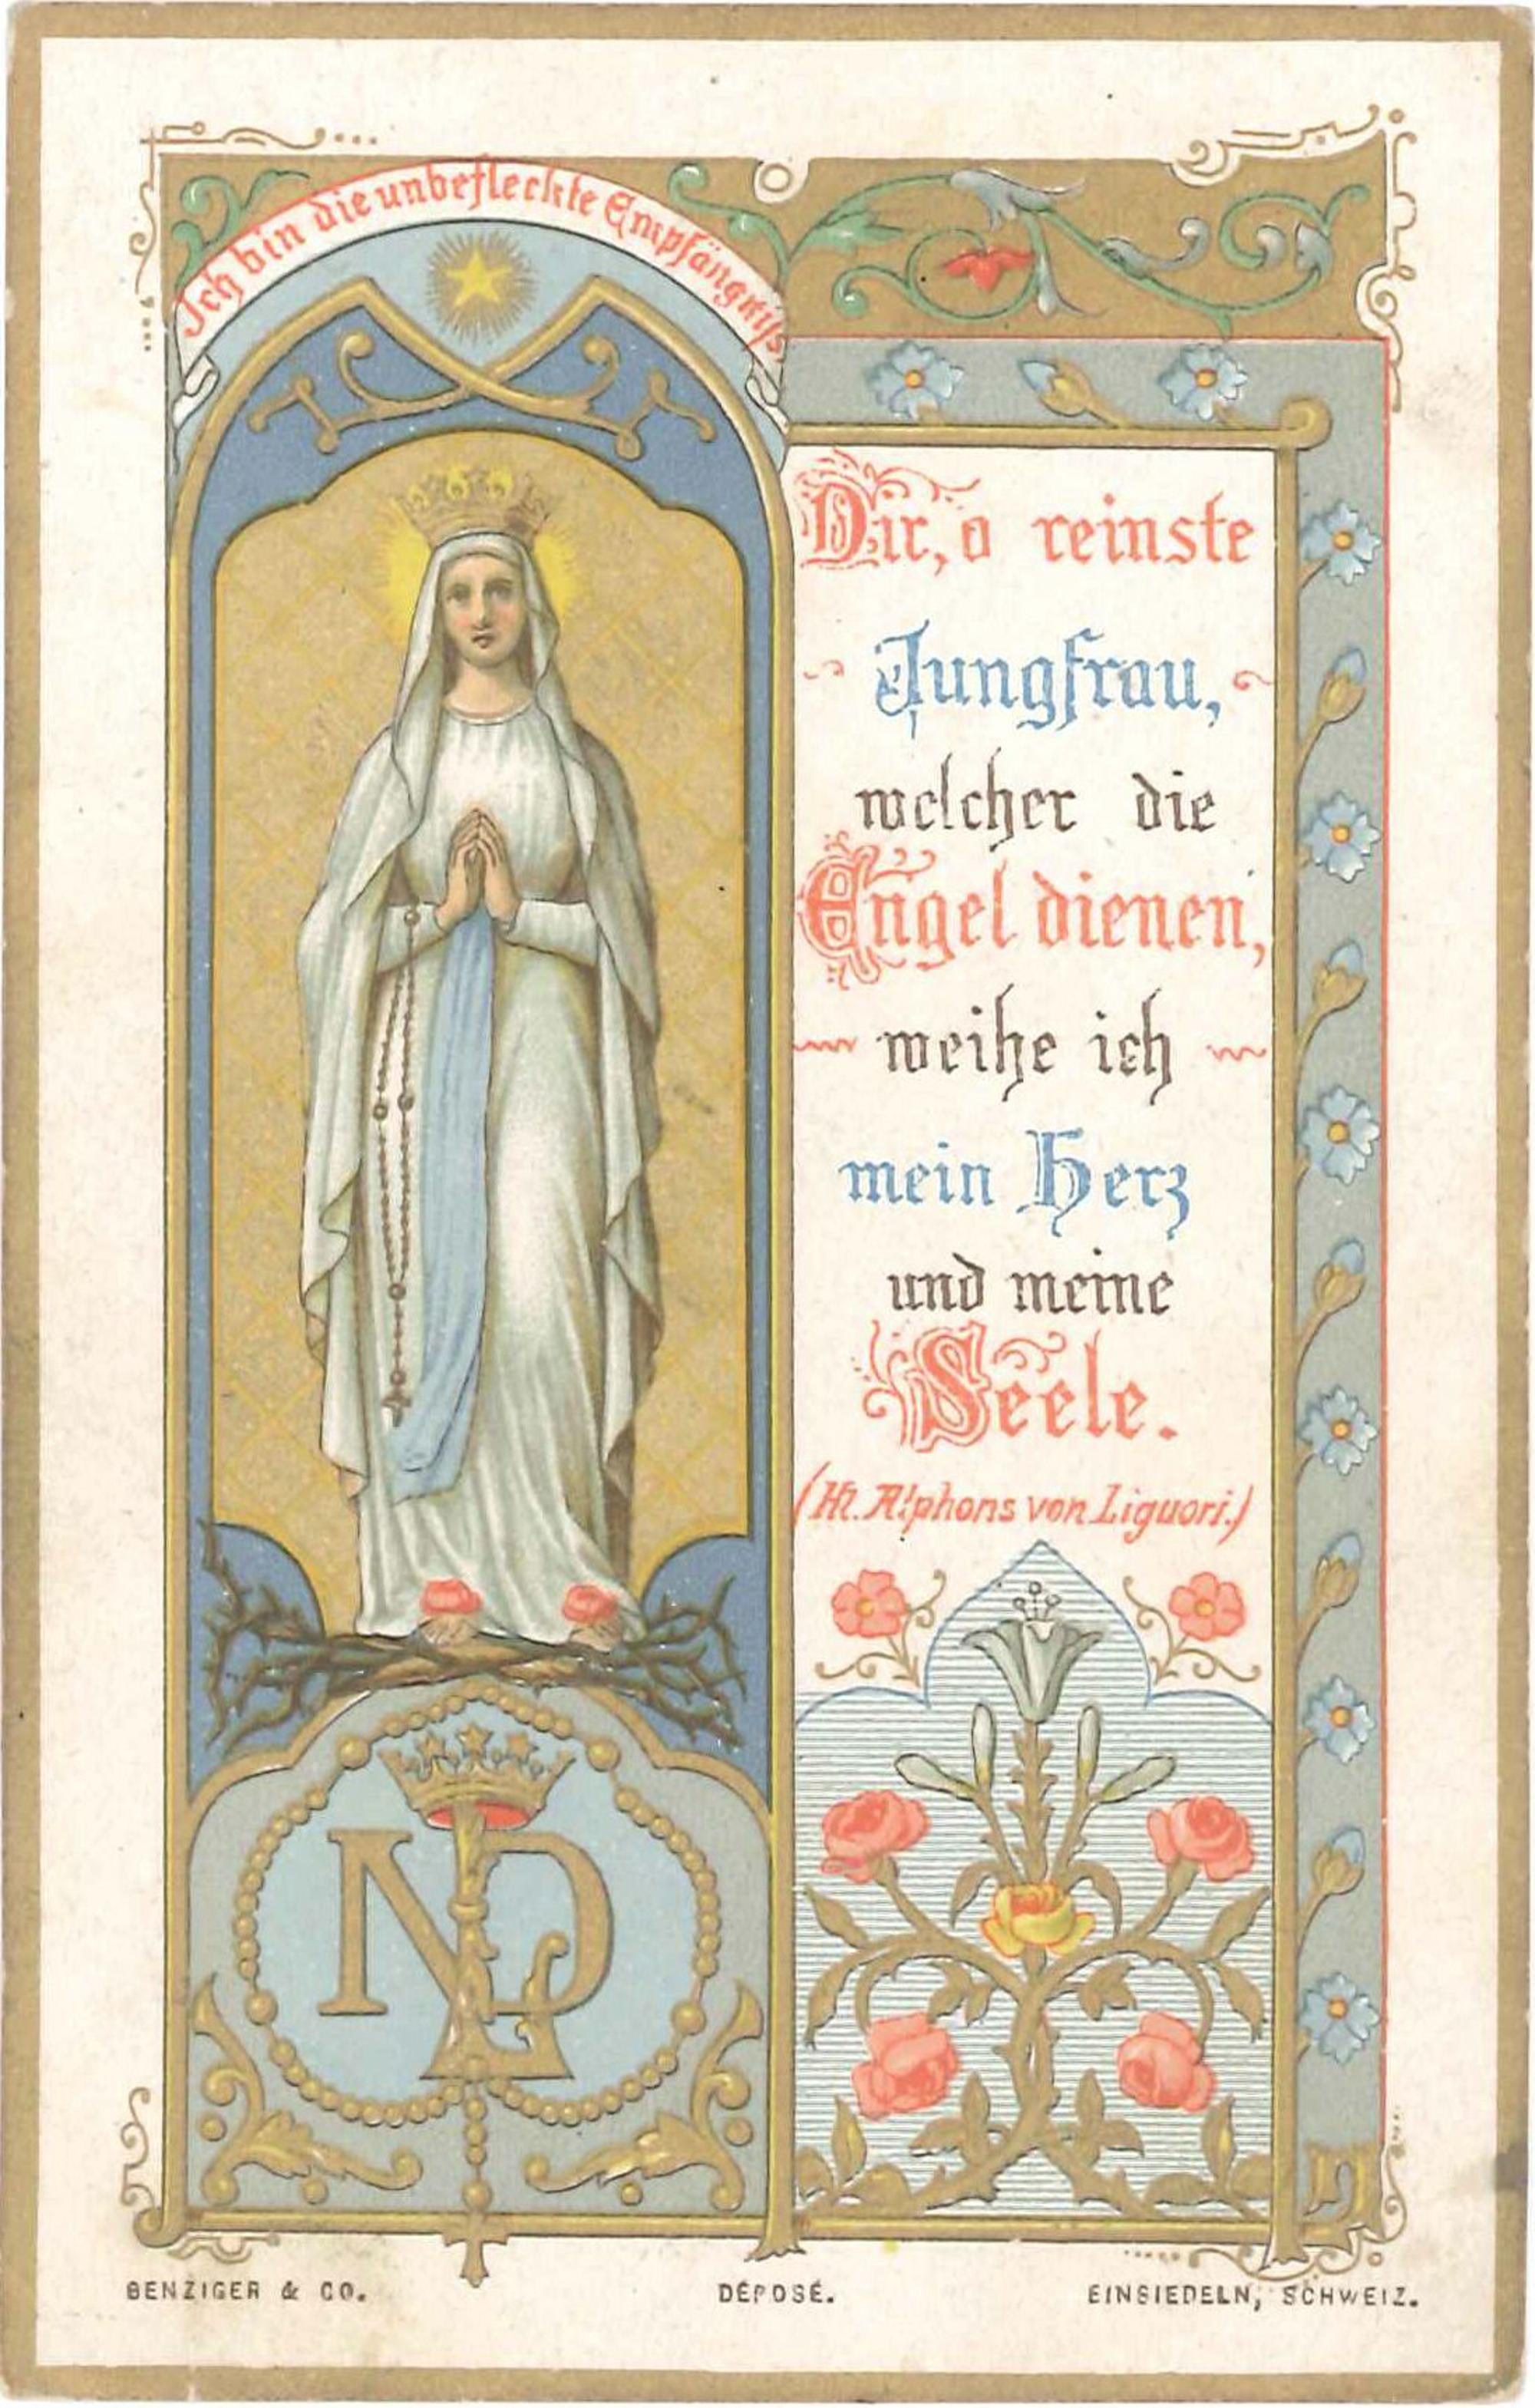 Ich bin die unbefleckte Empfängniss.
Dir, o reinste
Jungfrau,
welcher die
Engel dienen,
weihe ich
mein Herz
und meine
Seele.
(Hl. Alphons von Liguori.)
NDL
BENZIGER & CO.
DÉPOSÉ.
EINSIEDELN, SCHWEIZ.